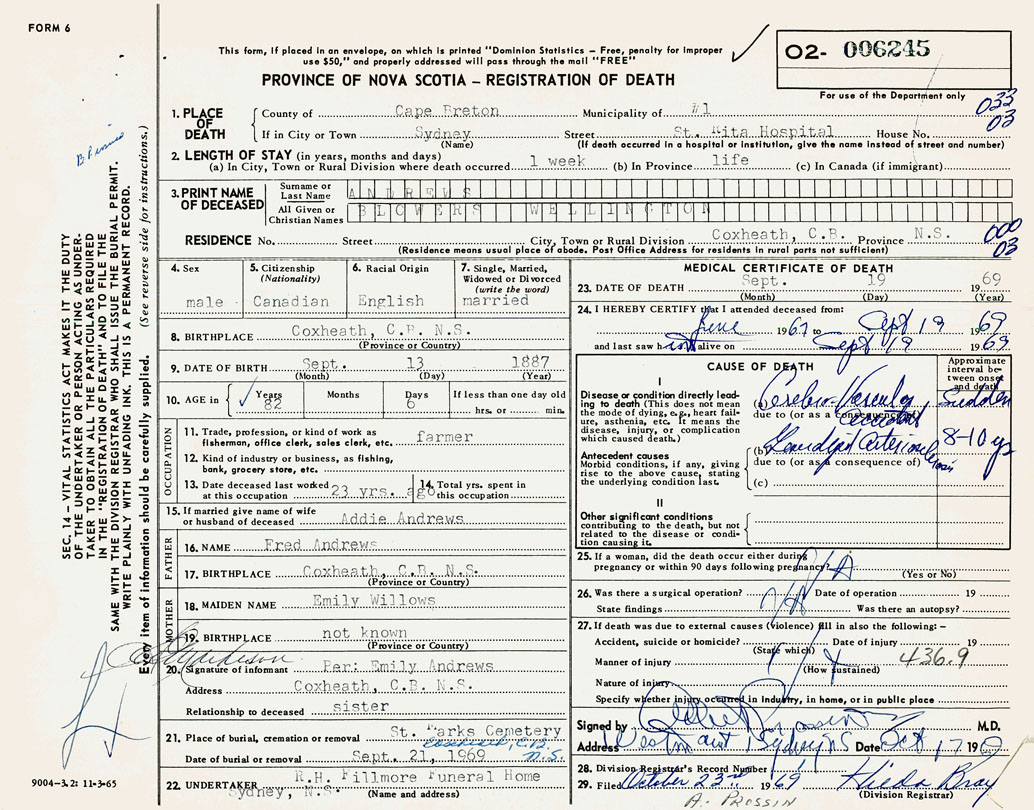 FORM 6
This form, if placed in an envelope, on which is printed "Dominion Statistics – Free, penalty for improper
use $50," and properly addressed will pass through the mail "FREE"
O2- 006245
PROVINCE OF NOVA SCOTIA – REGISTRATION OF DEATH
For use of the Department only
033
03
1. PLACE OF DEATH
County of Cape Breton Municipality of #1
If in City or Town Sydney Street St. Rita Hospital House No.
(Name) (If death occurred in a hospital or institution, give the name instead of street and number)
2. LENGTH OF STAY (in years, months and days)
(a) In City, Town or Rural Division where death occurred 1 week (b) In Province life (c) In Canada (if immigrant)
3. PRINT NAME OF DECEASED
Surname or Last Name ANDREWS
All Given or Christian Names BLOWERS WELLINGTON
RESIDENCE No. Street City, Town or Rural Division Coxheath, C.B. Province N.S.
(Residence means usual place of abode. Post Office Address for residents in rural parts not sufficient)
000
03
4. Sex male
5. Citizenship (Nationality) Canadian
6. Racial Origin English
7. Single, Married, Widowed or Divorced (write the word) married
8. BIRTHPLACE Coxheath, C.B. N.S.
(Province or Country)
9. DATE OF BIRTH Sept. 13 1887
(Month) (Day) (Year)
10. AGE in Years 82 Months Days 6 If less than one day old
hrs. or min.
OCCUPATION
11. Trade, profession, or kind of work as
fisherman, office clerk, sales clerk, etc. farmer
12. Kind of industry or business, as fishing,
bank, grocery store, etc.
13. Date deceased last worked at this occupation 23 yrs. ago
14. Total yrs. spent in this occupation
15. If married give name of wife
or husband of deceased Addie Andrews
FATHER
16. NAME Fred Andrews
17. BIRTHPLACE Coxheath, C.B. N.S.
(Province or Country)
MOTHER
18. MAIDEN NAME Emily Willows
19. BIRTHPLACE not known
(Province or Country)
20. Signature of informant Per: Emily Andrews
Address Coxheath, C.B. N.S.
Relationship to deceased sister
21. Place of burial, cremation or removal St. Marks Cemetery
Coxheath, C.B.
Date of burial or removal Sept. 21, 1969 N.S.
22. UNDERTAKER R.H. Fillmore Funeral Home
Sydney, N.S. (Name and address)
MEDICAL CERTIFICATE OF DEATH
23. DATE OF DEATH Sept. 19 1969
(Month) (Day) (Year)
24. I HEREBY CERTIFY that I attended deceased from:
June 1967 to Sept 19 1969
and last saw him alive on Sept 19 1969
CAUSE OF DEATH
Approximate interval between onset and death
I
Disease or condition directly leading to death (This does not mean the mode of dying, e.g., heart failure, asthenia, etc. It means the disease, injury, or complication which caused death.)
(a) Cerebro-Vascular Accident Sudden
due to (or as a consequence of)
Antecedent causes
Morbid conditions, if any, giving rise to the above cause, stating the underlying condition last.
(b) 8-10 yrs
due to (or as a consequence of)
(c)
II
Other significant conditions
contributing to the death, but not related to the disease or condition causing it.
25. If a woman, did the death occur either during
pregnancy or within 90 days following pregnancy? N/A
(Yes or No)
26. Was there a surgical operation? N/A Date of operation 19
State findings Was there an autopsy?
27. If death was due to external causes (violence) fill in also the following: –
Accident, suicide or homicide? Date of injury 19
(State which)
Manner of injury 436.9
(How sustained)
Nature of injury
Specify whether injury occurred in Industry, in home, or in public place
Signed by M.D.
Address Westmount Sydney NS Date Oct 17 19
28. Division Registrar's Record Number
29. Filed October 23rd 1969 Hilda Bray
(Division Registrar)
A. PROSSIN
SEC. 14 – VITAL STATISTICS ACT MAKES IT THE DUTY
OF THE UNDERTAKER OR PERSON ACTING AS UNDER-
TAKER TO OBTAIN ALL THE PARTICULARS REQUIRED
IN THE "REGISTRATION OF DEATH" AND TO FILE THE
SAME WITH THE DIVISION REGISTRAR WHO SHALL ISSUE THE BURIAL PERMIT.
WRITE PLAINLY WITH UNFADING INK. THIS IS A PERMANENT RECORD.
Every item of information should be carefully supplied. (See reverse side for instructions.)
9004-3.2: 11-3-65